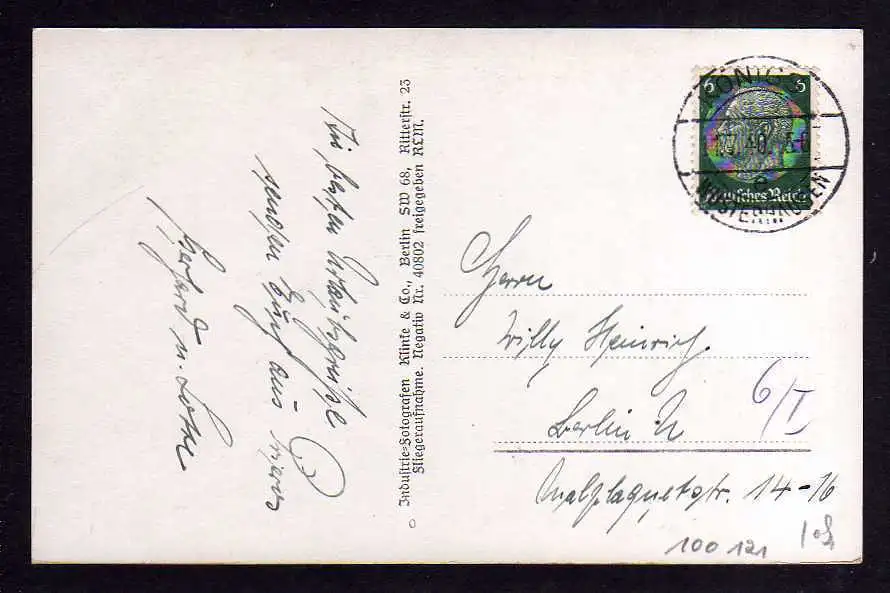 Die besten Urlaubsgrüße
senden Euch aus
Gerhard u. Lotte
Industrie=Fotografen Klinke & Co., Berlin SW 68, Ritterstr. 23
Fliegeraufnahme. Negativ Nr. 40802 freigegeben RLM.
6 6
Deutsches Reich
KÖNIGS
.40
WUSTERHAUSEN
Herrn
Willy Heinrich
Berlin N
6/I
Malplaquetstr. 14-16
100 121